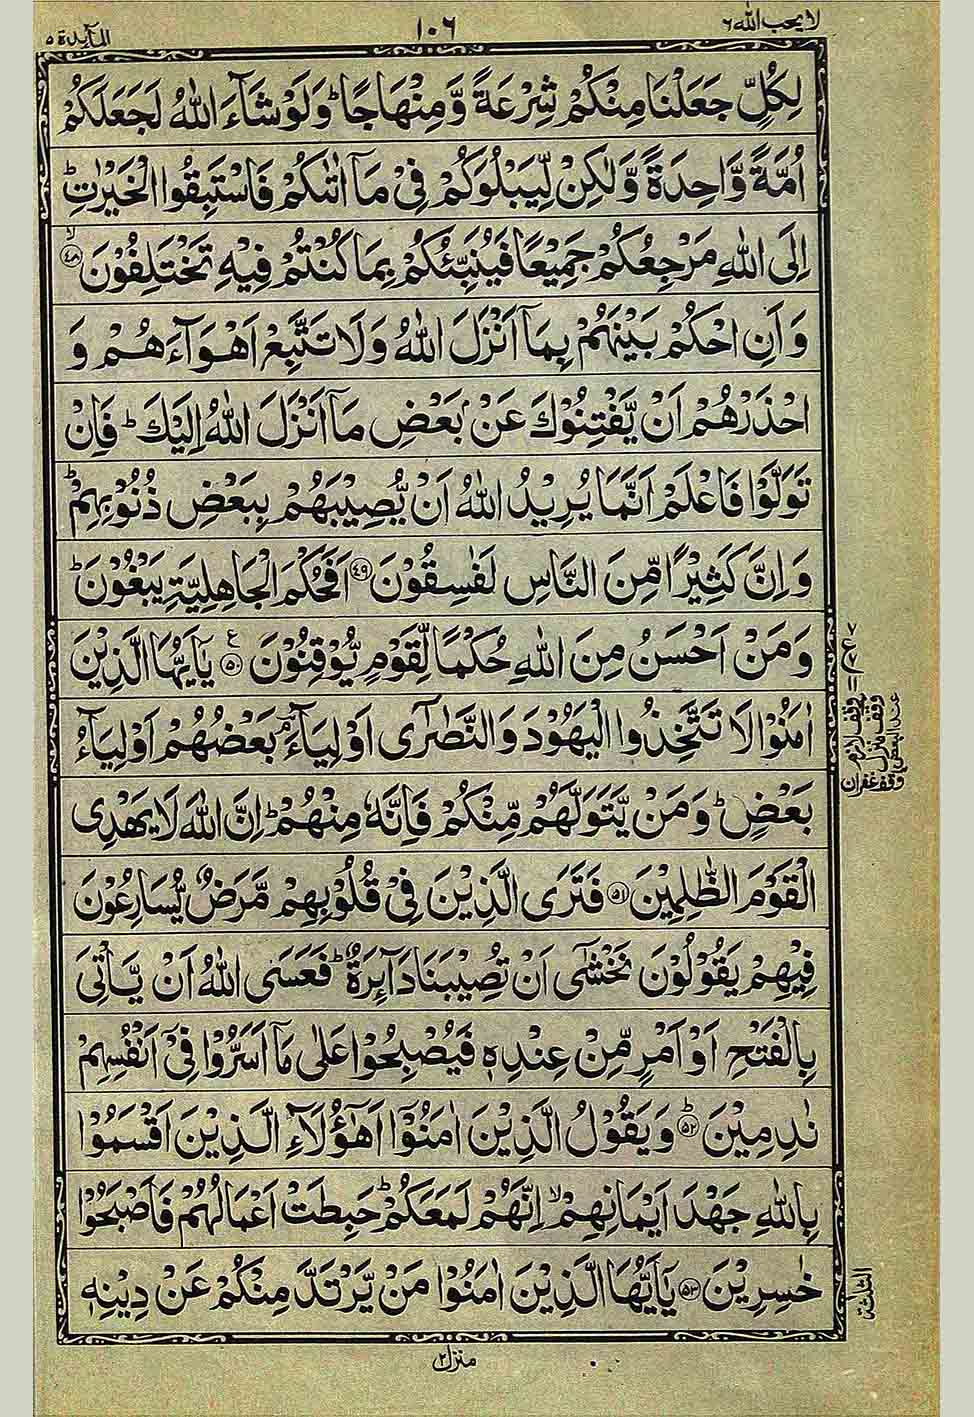 لا يحب الله ٦
١٠٦
المآىِٕدة ٥
لِكُلٍّ جَعَلْنَا مِنْكُمْ شِرْعَةً وَّ مِنْهَاجًا ؕ وَلَوْ شَآءَ اللّٰهُ لَجَعَلَكُمْ
اُمَّةً وَّاحِدَةً وَّلٰكِنْ لِّيَبْلُوَكُمْ فِيْ مَاۤ اٰتٰىكُمْ فَاسْتَبِقُوا الْخَيْرٰتِ ؕ
اِلَى اللّٰهِ مَرْجِعُكُمْ جَمِيْعًا فَيُنَبِّئُكُمْ بِمَا كُنْتُمْ فِيْهِ تَخْتَلِفُوْنَ ۙ﴿٤٨﴾
وَ اَنِ احْكُمْ بَيْنَهُمْ بِمَاۤ اَنْزَلَ اللّٰهُ وَلَا تَتَّبِعْ اَهْوَآءَهُمْ وَ
احْذَرْهُمْ اَنْ يَّفْتِنُوْكَ عَنْۢ بَعْضِ مَاۤ اَنْزَلَ اللّٰهُ اِلَيْكَ ؕ فَاِنْ
تَوَلَّوْا فَاعْلَمْ اَنَّمَا يُرِيْدُ اللّٰهُ اَنْ يُّصِيْبَهُمْ بِبَعْضِ ذُنُوْبِهِمْ ؕ
وَاِنَّ كَثِيْرًا مِّنَ النَّاسِ لَفٰسِقُوْنَ ﴿٤٩﴾ اَفَحُكْمَ الْجَاهِلِيَّةِ يَبْغُوْنَ ؕ
وَمَنْ اَحْسَنُ مِنَ اللّٰهِ حُكْمًا لِّقَوْمٍ يُّوْقِنُوْنَ ﴿٥٠﴾ع يٰۤاَيُّهَا الَّذِيْنَ
اٰمَنُوْا لَا تَتَّخِذُوا الْيَهُوْدَ وَالنَّصٰرٰۤى اَوْلِيَآءَ ۘ بَعْضُهُمْ اَوْلِيَآءُ
بَعْضٍ ؕ وَمَنْ يَّتَوَلَّهُمْ مِّنْكُمْ فَاِنَّهٗ مِنْهُمْ ؕ اِنَّ اللّٰهَ لَا يَهْدِى
الْقَوْمَ الظّٰلِمِيْنَ ﴿٥١﴾ فَتَرَى الَّذِيْنَ فِيْ قُلُوْبِهِمْ مَّرَضٌ يُّسَارِعُوْنَ
فِيْهِمْ يَقُوْلُوْنَ نَخْشٰۤى اَنْ تُصِيْبَنَا دَآئِرَةٌ ؕ فَعَسَى اللّٰهُ اَنْ يَّاْتِىَ
بِالْفَتْحِ اَوْ اَمْرٍ مِّنْ عِنْدِهٖ فَيُصْبِحُوْا عَلٰى مَاۤ اَسَرُّوْا فِيْۤ اَنْفُسِهِمْ
نٰدِمِيْنَ ؕ﴿٥٢﴾ وَ يَقُوْلُ الَّذِيْنَ اٰمَنُوْۤا اَهٰۤؤُلَآءِ الَّذِيْنَ اَقْسَمُوْا
بِاللّٰهِ جَهْدَ اَيْمَانِهِمْ ۙ اِنَّهُمْ لَمَعَكُمْ ؕ حَبِطَتْ اَعْمَالُهُمْ فَاَصْبَحُوْا
خٰسِرِيْنَ ﴿٥٣﴾ يٰۤاَيُّهَا الَّذِيْنَ اٰمَنُوْا مَنْ يَّرْتَدَّ مِنْكُمْ عَنْ دِيْنِهٖ
وقف لازم
وقف منزل
وقف غفران
الثلثة
منزل ٢